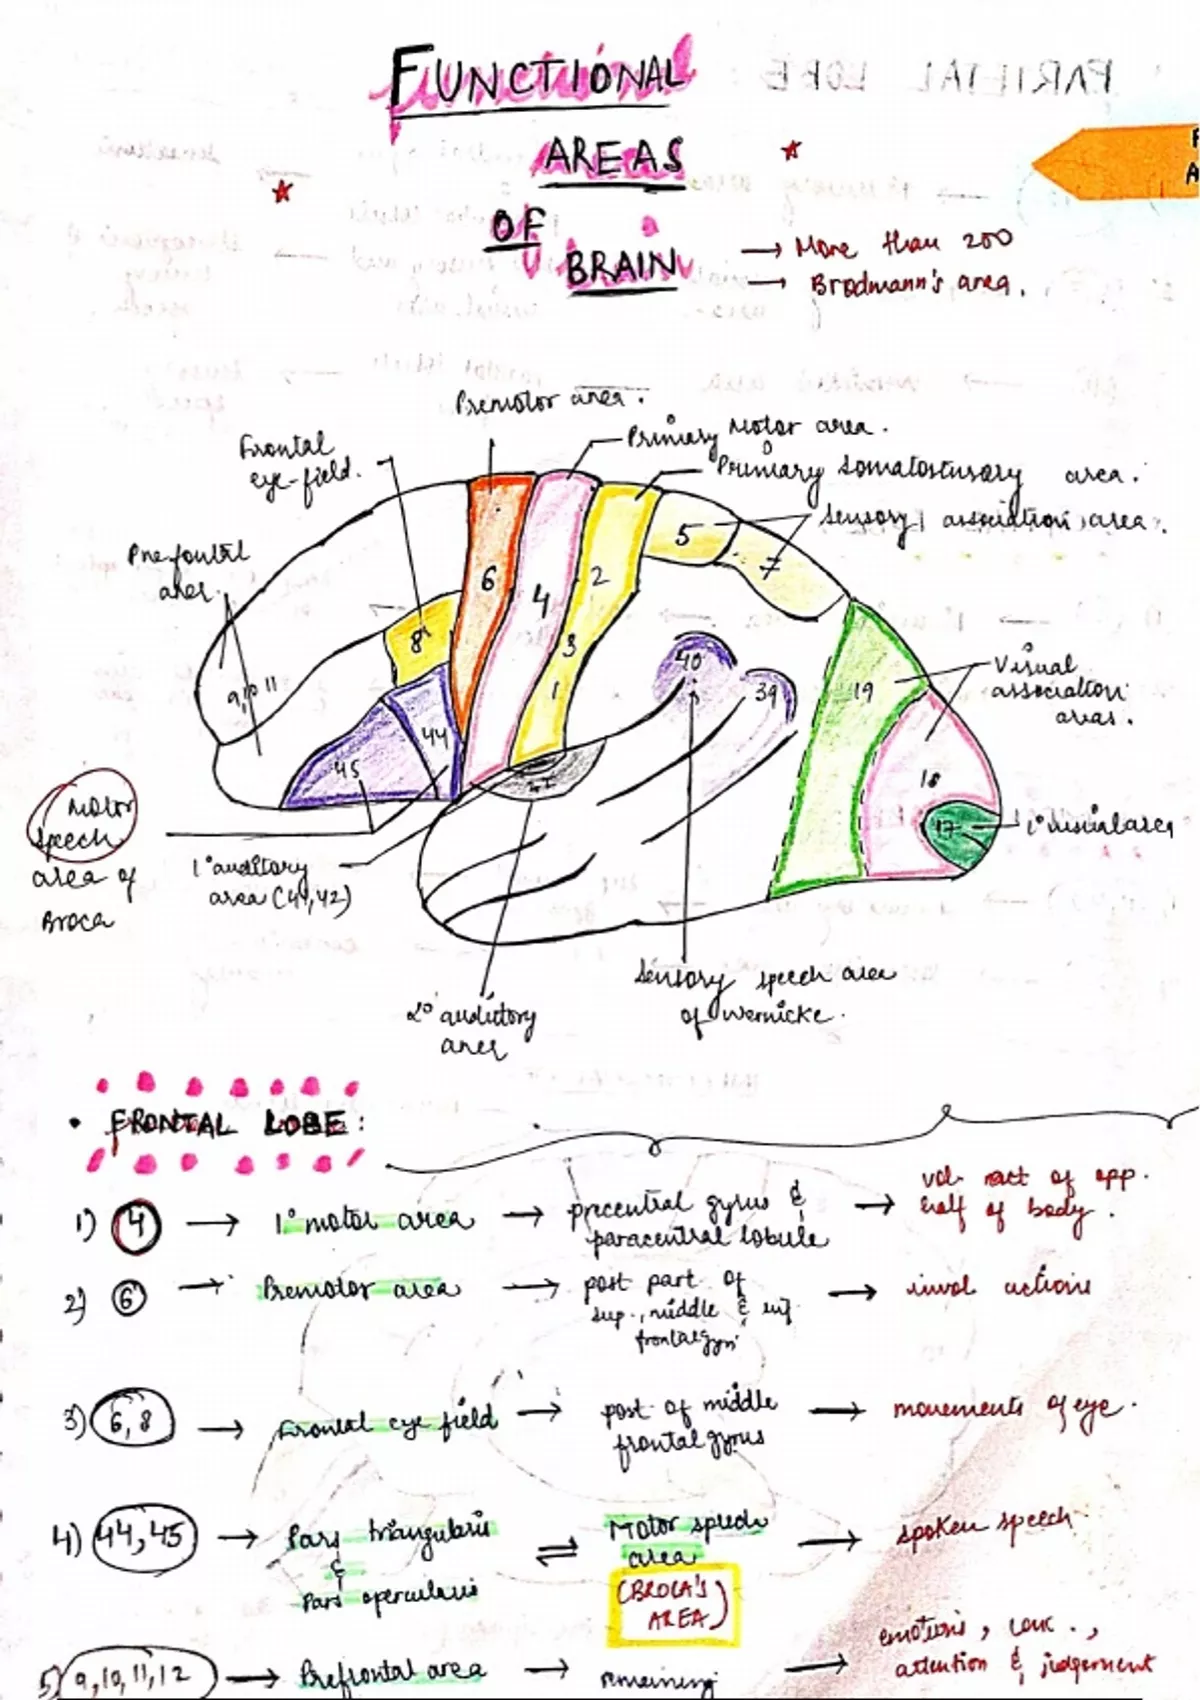 FUNCTIONAL
AREAS
OF
BRAIN
→ More than 200
→ Brodmann's area.
Premotor area.
Primary Motor area.
Frontal
eye-field.
Primary Somatosensory area.
Sensory association area.
Prefontal
area
6
4
2
3
1
5
7
8
9,10 11
44
45
40
39
19
18
17
Visual
association
areas.
1° visual area
Motor
speech
area of
Broca
1° auditory
area (41,42)
2° auditory
area
Sensory speech area
of Wernicke.
• FRONTAL LOBE:
1) 4 → 1° motor area → precentral gyrus & paracentral lobule → vol. act of opp. half of body.
2) 6 → Premotor area → post part of sup., middle & inf. frontal gyri → invol actions
3) 6, 8 → Frontal eye field → post. of middle frontal gyrus → movements of eye.
4) 44, 45 → Pars triangularis & Pars opercularis ⇌ Motor speech area (BROCA'S AREA) → spoken speech
5) 9, 10, 11, 12 → Prefrontal area → remaining → emotions, conc., attention & judgement